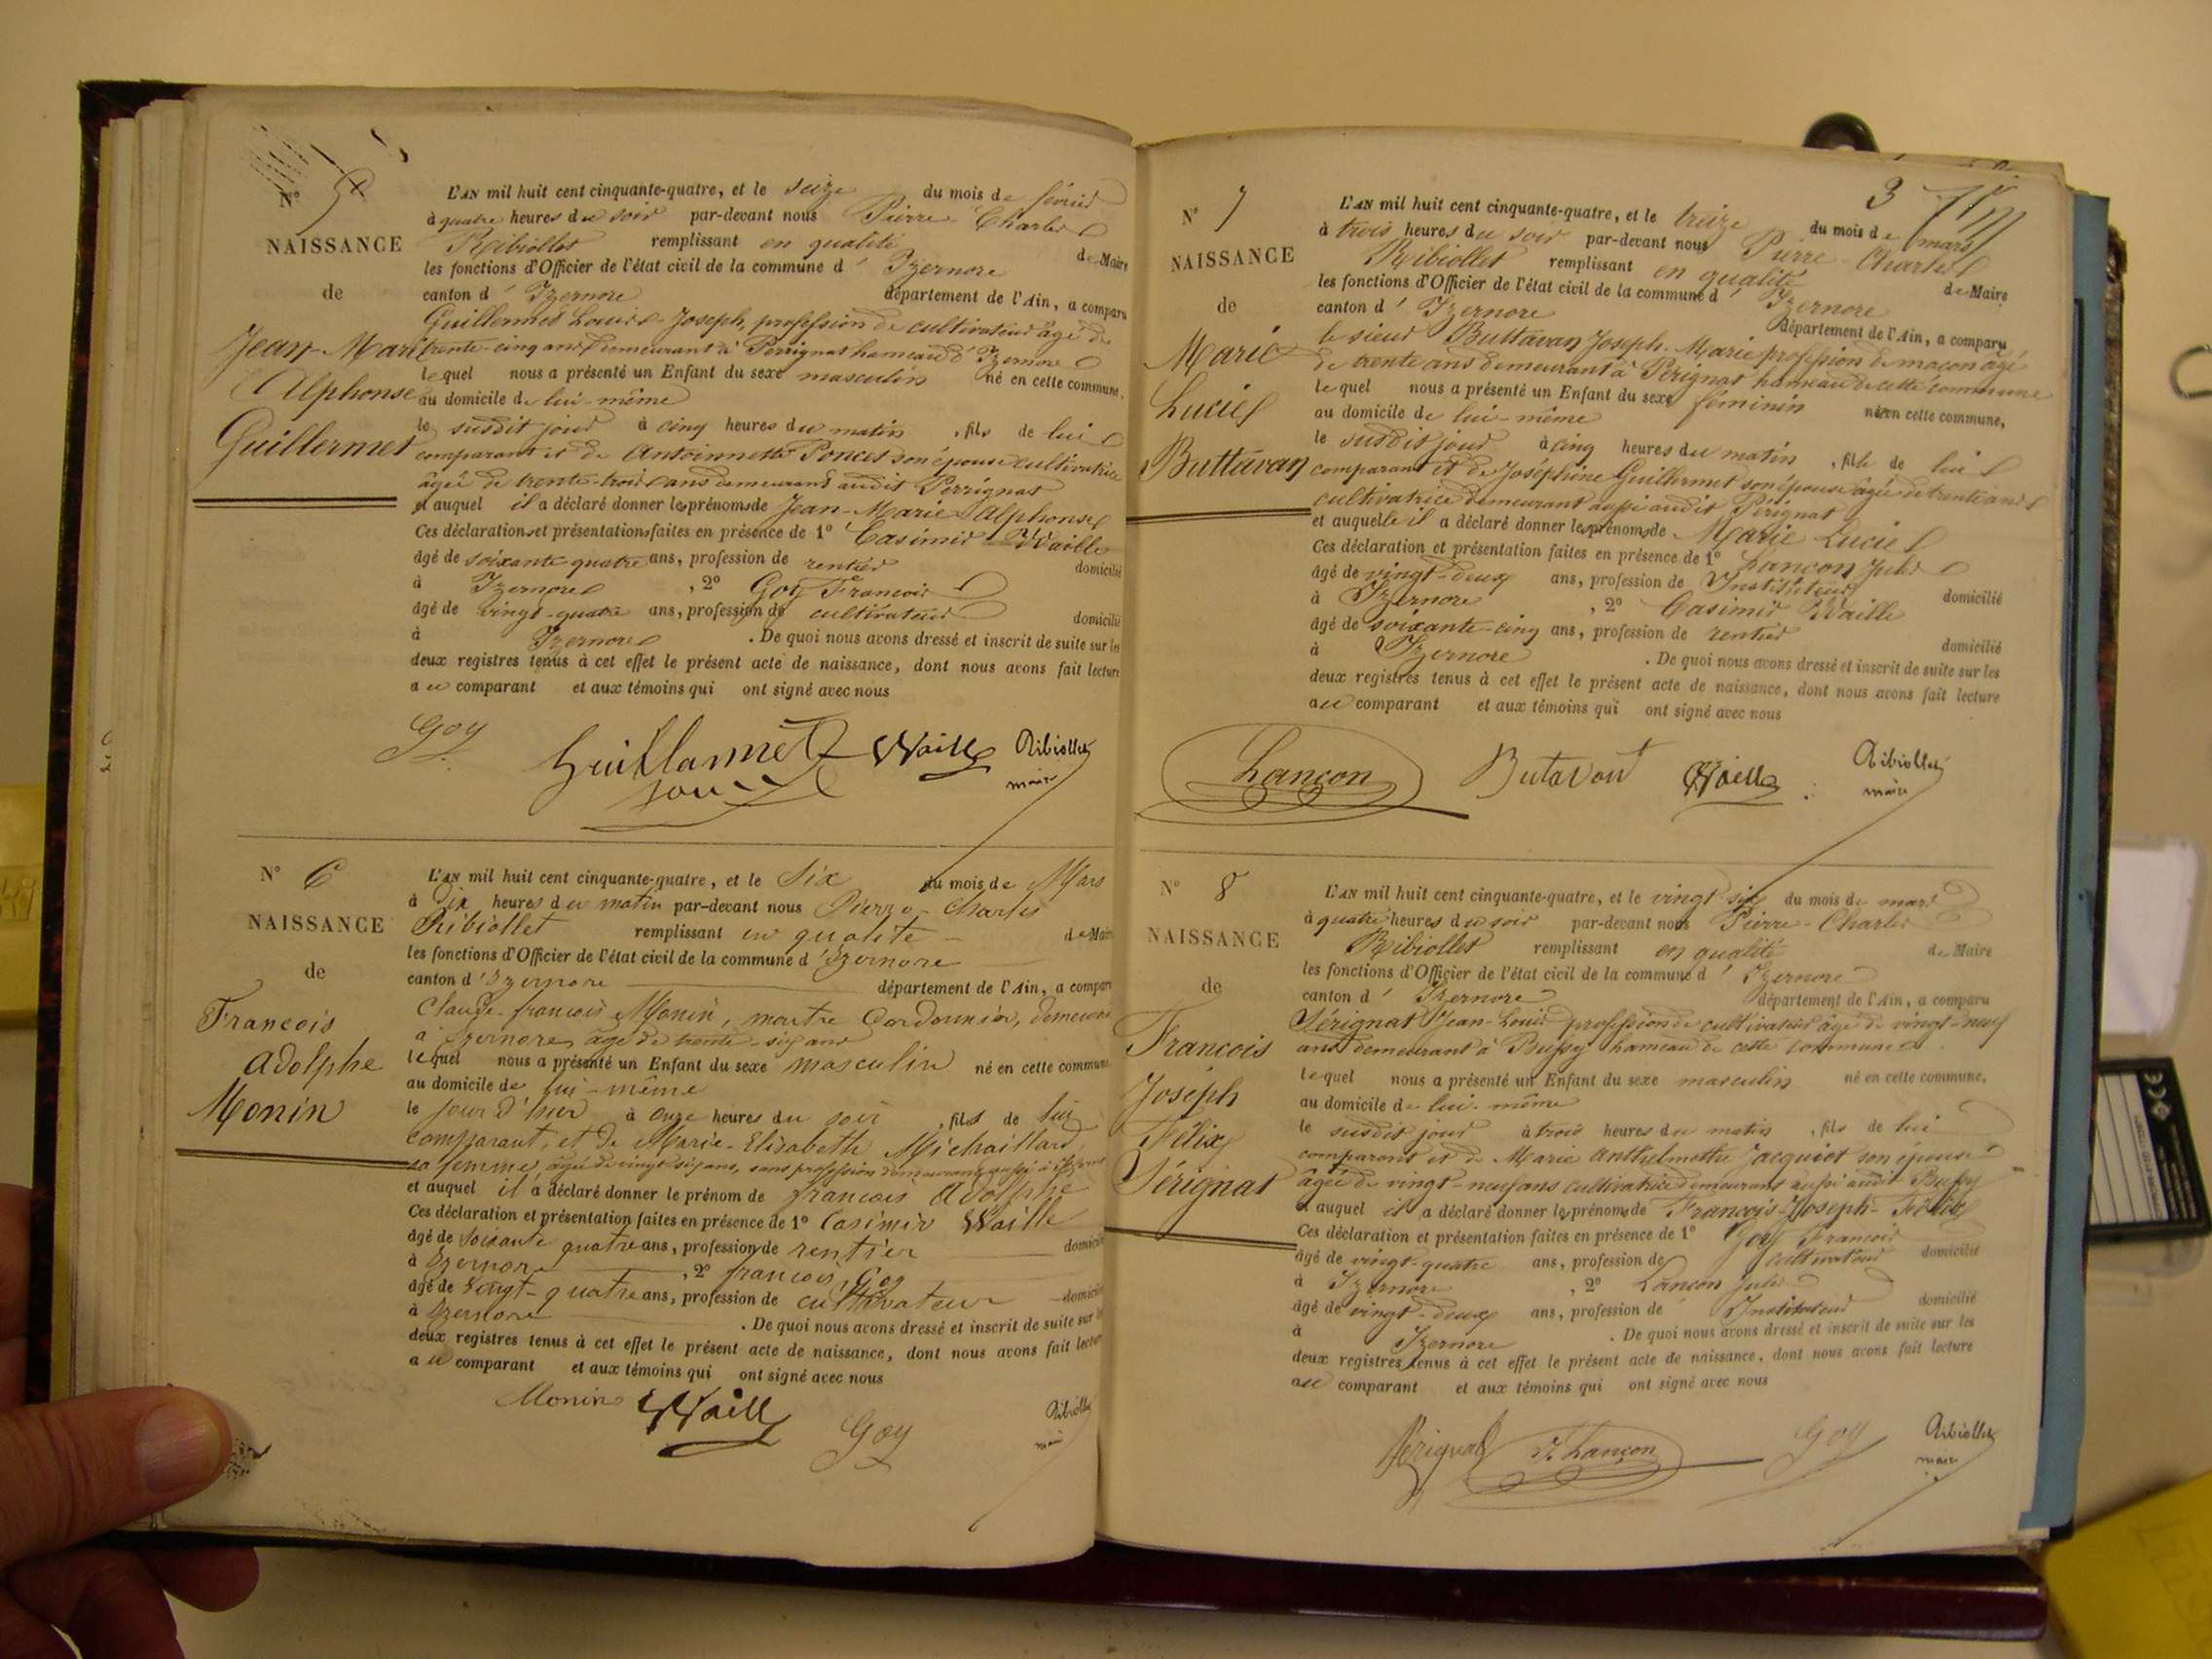 N° 5
NAISSANCE
de
Jean-Marie
Alphonse
Guillermet
L'AN mil huit cent cinquante-quatre, et le seize du mois de février
à quatre heures du soir par-devant nous Pierre Charles
Ribiollet remplissant en qualité de Maire
les fonctions d'Officier de l'état civil de la commune d' Izernore
canton d' Izernore département de l'Ain, a comparu
Guillermet Louis-Joseph, profession de cultivateur âgé de
trente-cinq ans demeurant à Perrignat hameau d'Izernore
lequel nous a présenté un Enfant du sexe masculin né en cette commune,
au domicile de lui-même
le susdit jour à cinq heures du matin, fils de lui
comparant et de Antoinnette Poncet son épouse cultivatrice
âgée de trente-trois ans demeurant audit Perrignat
et auquel il a déclaré donner les prénoms de Jean-Marie Alphonse
Ces déclarations et présentations faites en présence de 1° Casimir Waille
âgé de soixante quatre ans, profession de rentier domicilié
à Izernore, 2° Goy François
âgé de vingt-quatre ans, profession de cultivateur domicilié
à Izernore. De quoi nous avons dressé et inscrit de suite sur les
deux registres tenus à cet effet le présent acte de naissance, dont nous avons fait lecture
au comparant et aux témoins qui ont signé avec nous
Goy Guillarmet Waille Ribiollet
maire
N° 6
NAISSANCE
de
François
Adolphe
Monin
L'AN mil huit cent cinquante-quatre, et le Six du mois de Mars
à Dix heures du matin par-devant nous Pierre-Charles
Ribiollet remplissant en qualité de Maire
les fonctions d'Officier de l'état civil de la commune d'Izernore
canton d'Izernore département de l'Ain, a comparu
Claude-françois Monin, maitre Cordonnier, demeurant
à Izernore, âgé de trente-six ans
lequel nous a présenté un Enfant du sexe masculin né en cette commune,
au domicile de lui-même
le jour d'hier à onze heures du soir, fils de lui
comparant, et de Marie-Elisabeth Michaillard
sa femme, âgée de vingt six ans, sans profession demeurant aussi à Izernore
et auquel il a déclaré donner le prénom de françois Adolphe
Ces déclaration et présentation faites en présence de 1° Casimir Waille
âgé de Soixante quatre ans, profession de rentier domicilié
à Izernore, 2° françois Goy
âgé de Vingt-quatre ans, profession de cultivateur domicilié
à Izernore. De quoi nous avons dressé et inscrit de suite sur les
deux registres tenus à cet effet le présent acte de naissance, dont nous avons fait lecture
au comparant et aux témoins qui ont signé avec nous
Monin Waille Goy Ribiollet
maire
3
N° 7
NAISSANCE
de
Marie
Lucie
Buttavan
L'AN mil huit cent cinquante-quatre, et le treize du mois de mars
à trois heures du soir par-devant nous Pierre Charles
Ribiollet remplissant en qualité de Maire
les fonctions d'Officier de l'état civil de la commune d' Izernore
canton d' Izernore département de l'Ain, a comparu
le sieur Buttavan Joseph-Marie profession de maçon âgé
de trente ans demeurant à Pérignat hameau de cette commune
lequel nous a présenté un Enfant du sexe féminin née en cette commune,
au domicile de lui-même
le susdit jour à cinq heures du matin, fille de lui
comparant et de Joséphine Guillermet son épouse âgée de trente ans
cultivatrice demeurant aussi audit Pérignat
et auquelle il a déclaré donner les prénoms de Marie Lucie
Ces déclaration et présentation faites en présence de 1° Lançon Jules
âgé de vingt-deux ans, profession de Instituteur domicilié
à Izernore, 2° Casimir Waille
âgé de soixante-cinq ans, profession de rentier domicilié
à Izernore. De quoi nous avons dressé et inscrit de suite sur les
deux registres tenus à cet effet le présent acte de naissance, dont nous avons fait lecture
au comparant et aux témoins qui ont signé avec nous
Lançon Butavan Waille Ribiollet
maire
N° 8
NAISSANCE
de
François
Joséph
Félix
Sérignat
L'AN mil huit cent cinquante-quatre, et le vingt six du mois de mars
à quatre heures du soir par-devant nous Pierre-Charles
Ribiollet remplissant en qualité de Maire
les fonctions d'Officier de l'état civil de la commune d' Izernore
canton d' Izernore département de l'Ain, a comparu
Sérignat Jean-Louis profession de cultivateur âgé de vingt-neuf
ans demeurant à Bussy hameau de cette commune
lequel nous a présenté un Enfant du sexe masculin né en cette commune,
au domicile de lui-même
le susdit jour à trois heures du matin, fils de lui
comparant et de Marie Anthelmette Jacquiot son épouse
âgée de vingt-neuf ans cultivatrice demeurant aussi audit Bussy
et auquel il a déclaré donner les prénoms de François-Joseph-Félix
Ces déclaration et présentation faites en présence de 1° Goy François
âgé de vingt-quatre ans, profession de cultivateur domicilié
à Izernore, 2° Lançon Jules
âgé de vingt-deux ans, profession de Instituteur domicilié
à Izernore. De quoi nous avons dressé et inscrit de suite sur les
deux registres tenus à cet effet le présent acte de naissance, dont nous avons fait lecture
au comparant et aux témoins qui ont signé avec nous
Sérignat J. Lançon Goy Ribiollet
maire